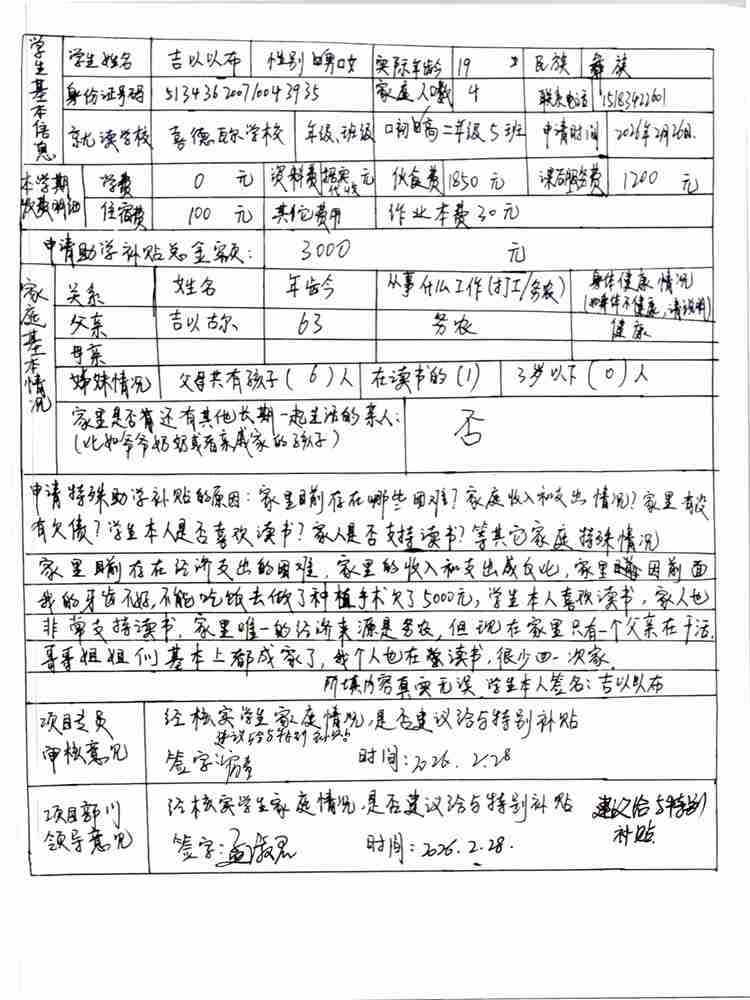 学生基本信息
学生姓名 吉以以布 性别 ☑男 口女 实际年龄 19 岁 民族 彝族
身份证号码 513436200710043935 家庭人口数 4 联系电话 15183422601
就读学校 喜德瓦尔学校 年级、班级 口初☑高二年级5班 申请时间 2026年2月26日
本学期收费明细
学费 0 元 资料费 据实代收 元 伙食费 1850 元 课后服务费 1200 元
住宿费 100 元 其它费用 作业本费30元
申请助学补贴总金额: 3000 元
家庭基本情况
关系 姓名 年龄 从事什么工作(打工/务农) 身体健康情况(如身体不健康,请说明)
父亲 吉以古尔 63 务农 健康
母亲
姊妹情况 父母共有孩子(6)人 在读书的(1) 3岁以下(0)人
家里是否还有其他长期一起生活的亲人:
(比如爷爷奶奶或者亲戚家的孩子) 否
申请特殊助学补贴的原因:家里目前存在哪些困难?家庭收入和支出情况?家里有没
有欠债?学生本人是否喜欢读书?家人是否支持读书?等其它家庭特殊情况
家里目前存在经济支出的困难,家里的收入和支出成反比,家里因前面
我的牙齿不好,不能吃饭去做了种植手术欠了5000元,学生本人喜欢读书,家人也
非常支持读书.家里唯一的经济来源是务农,但现在家里只有一个父亲在干活,
哥哥姐姐们基本上都成家了,我个人也在读书,很少回一次家.
所填内容真实无误.学生本人签名:吉以以布
项目专员审核意见
经核实学生家庭情况,是否建议给与特别补贴
建议给与特别补贴
签字: 时间:2026.2.28
项目部门领导意见
经核实学生家庭情况,是否建议给与特别补贴 建议给与特别补贴
签字: 时间:2026.2.28.